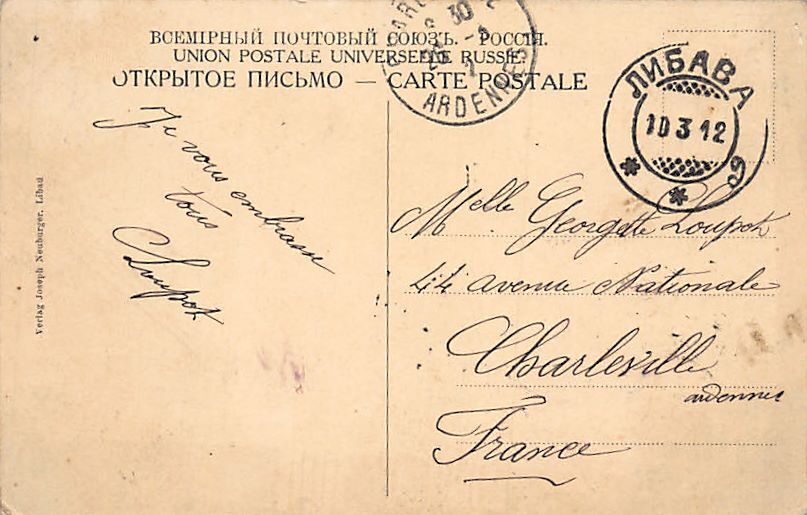 ВСЕМІРНЫЙ ПОЧТОВЫЙ СОЮЗЪ. РОССІЯ.
UNION POSTALE UNIVERSELLE RUSSIE.
ОТКРЫТОЕ ПИСЬМО — CARTE POSTALE
ARDENNES
ЛИБАВА
10 3 12
9
Je vous embrasse
tous
Loupot
Melle Georgette Loupot
44 avenue Nationale
Charleville
ardennes
France
Verlag Joseph Neuburger, Libau